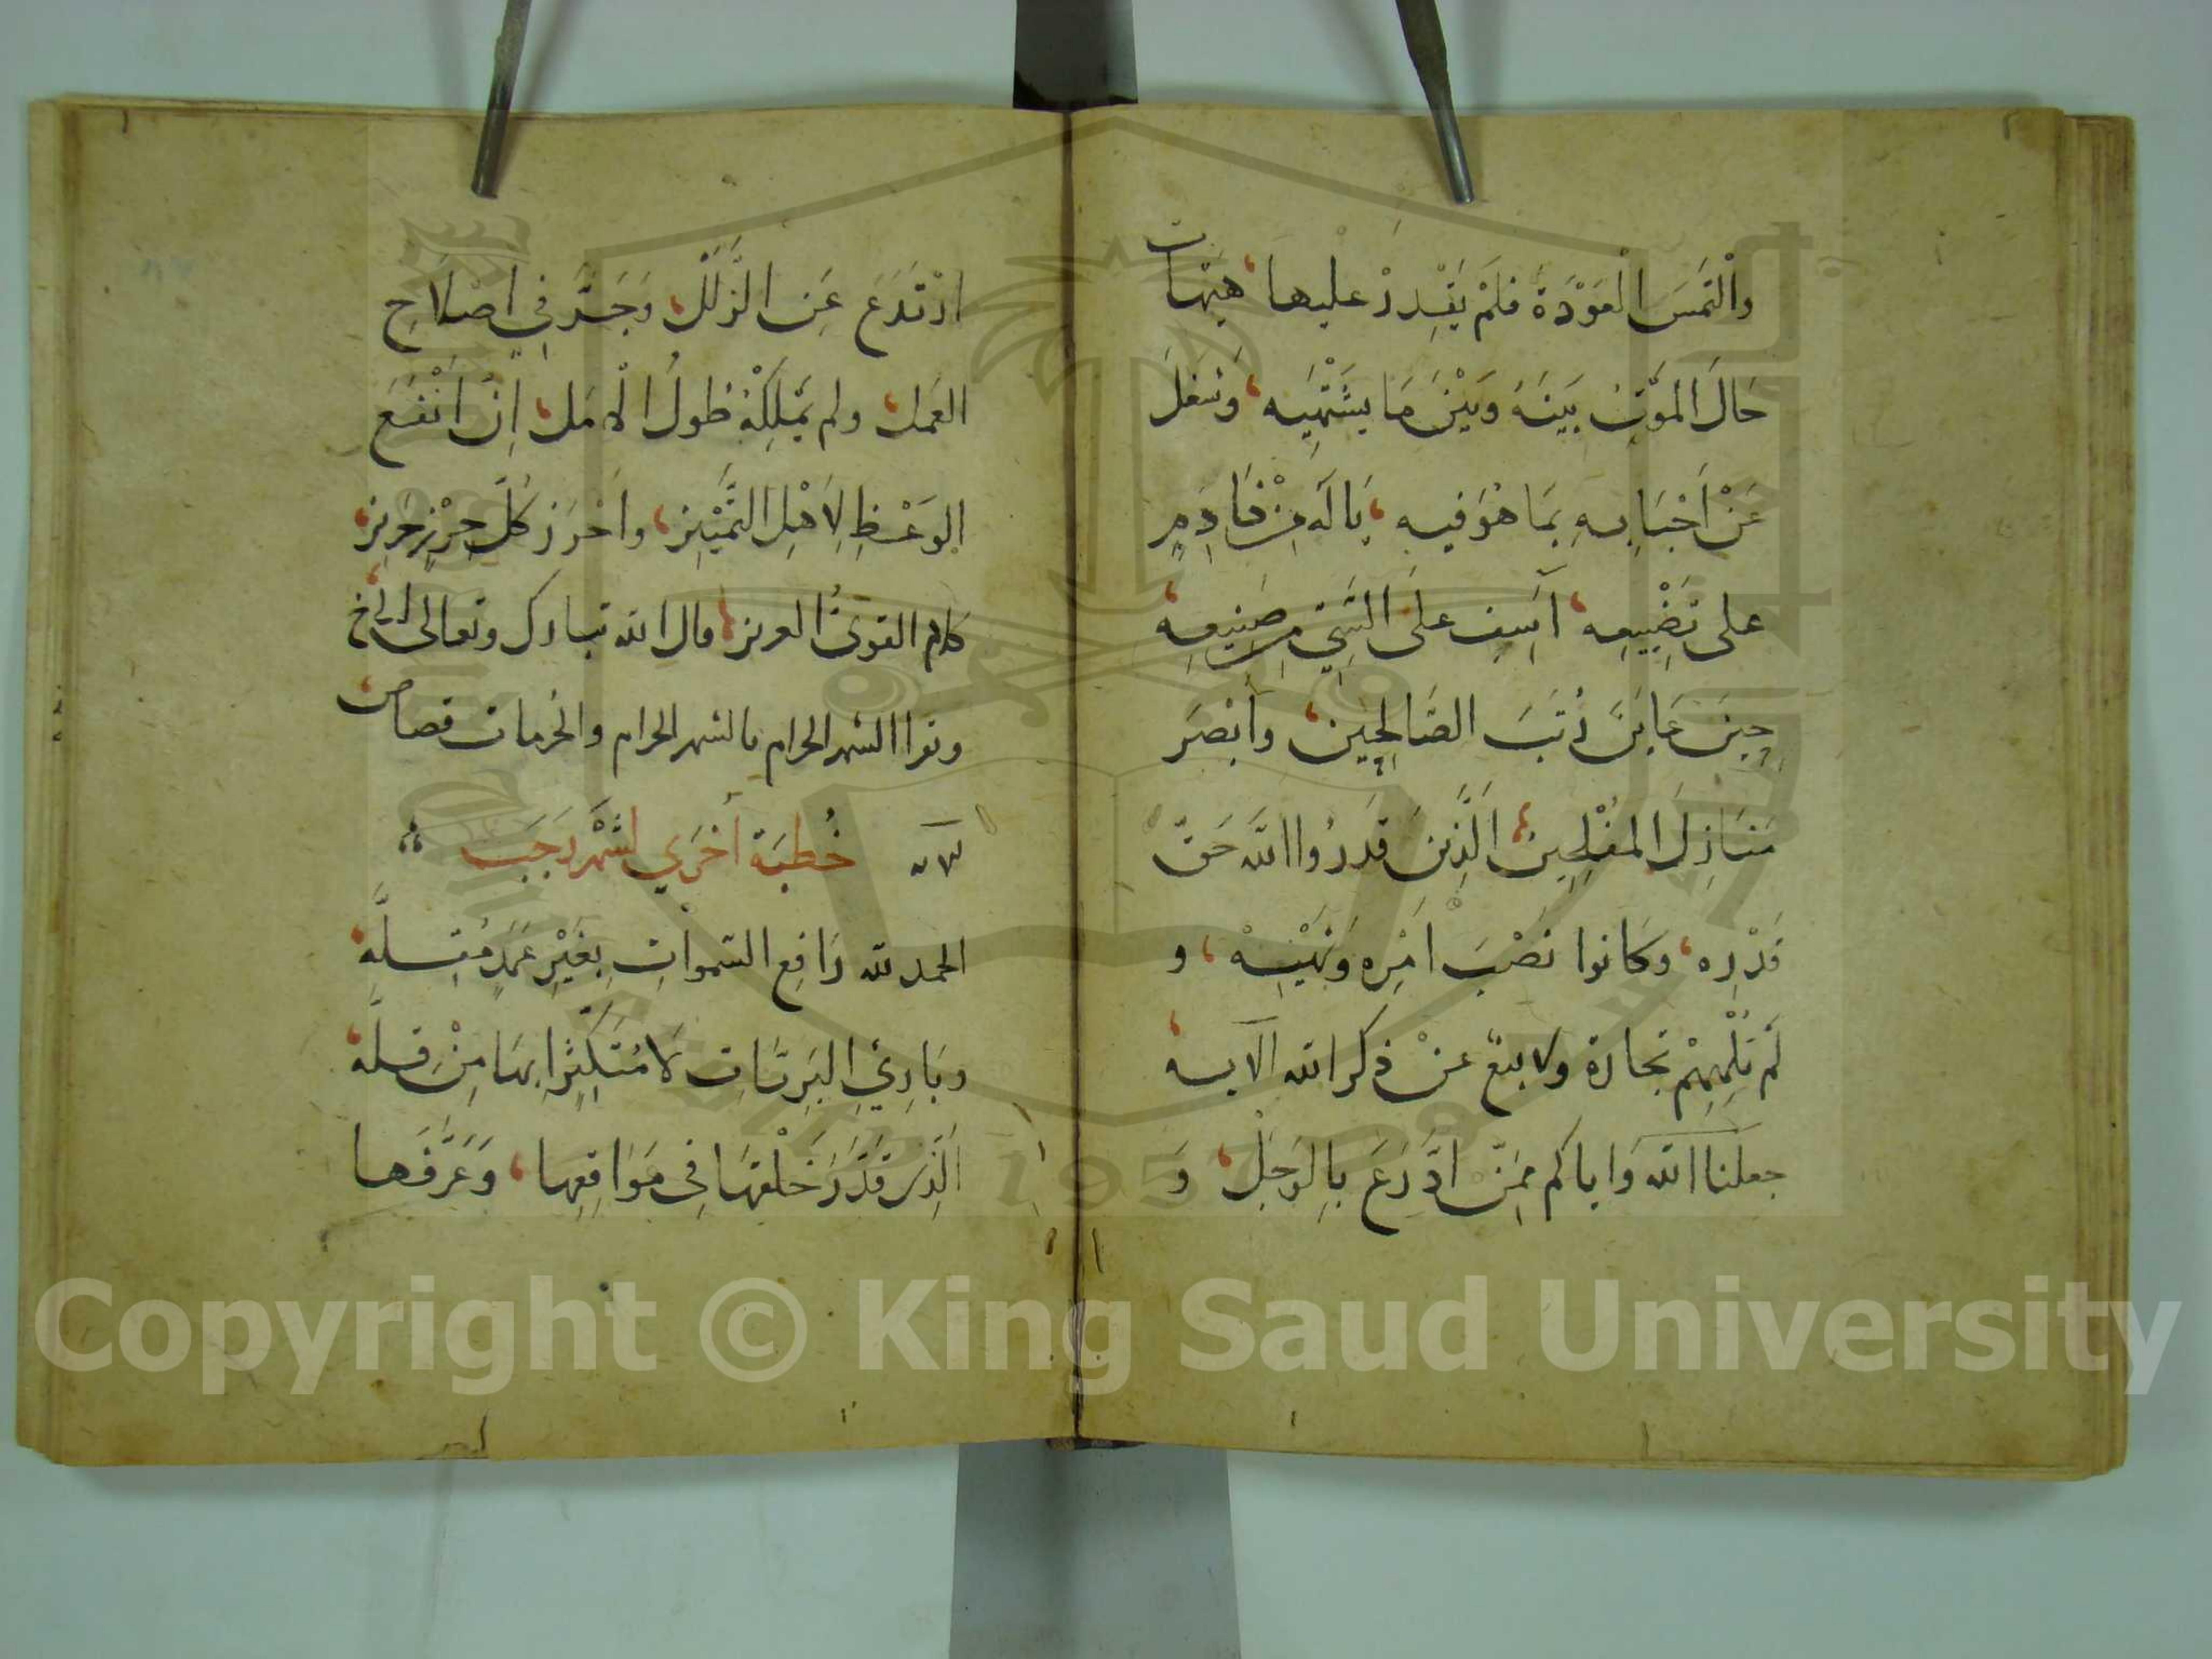 والْتَمَسَ الْعَوْدَةَ فلَمْ يَقْدِرْ عليها، هَيْهات
حَالَ الموْتُ بَيْنَهُ وَبَيْنَ مَا يَشْتَهِيه، وَشغلَ
عَنْ اَحْبَابِهِ بِمَا هُوَ فيه، يَالَه مِنْ نَادِمٍ
على تَضْيِيعِه، آسِفٍ علَى السَّيّئِ مِن صَنِيعِه،
حِينَ عَايَنَ رُتَبَ الصَّالِحِين، وأبْصَرَ
مَنَازِلَ المفْلِحِين، الَّذِينَ قَدَرُوا اللهَ حَقّ
قَدْرِه، وكَانوا نَصْبَ امْرِه وَنَهْيِه، و
لَم تُلْهِهِمْ تجارة ولا بيع عنْ ذكر الله الآيه،
جعلنا الله وَاياكم مِمَّن ادَّرَعَ بِالوَجَلْ، وَ
ارْتَدَعَ عَنِ الزَّلَلْ، وَجَدَّ في اصْلَاحِ
العَمل، ولم يَمْلِكْهُ طُولُ الْامَل، اِنَّ اَنْفَعَ
الوَعْظِ لِاَهْلِ التَّمْيْيز، واَحْرَز كُلِّ حِرْزٍ حَرِيز،
كلام القوىُّ العزيز، قال الله تبارك وتعالى الى اخ،
وتقرا الشهر الحرام بالشهر الحرام والحُرمات قصاص،
خُطبَة اُخرَي لشَهْر رَجَبَ
الحمد لله رَافِع السّموَاتِ بِغَيْرِ عَمَدٍ مُقِلَّه،
وبَارِئِ البَرِيَّاتِ لَا مُتَكَثِّرًا بِهَا مِنْ قِلَّه،
الَّذِي قدَّرَ خَلْقَهَا فِى مَوَاقِعِها، وَعَرَّفَها
Copyright © King Saud University
1957